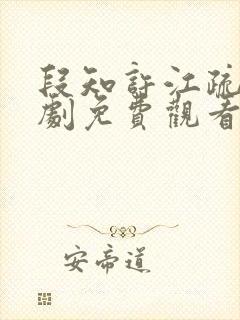 段知許江疏
劇免費觀看
安帝道